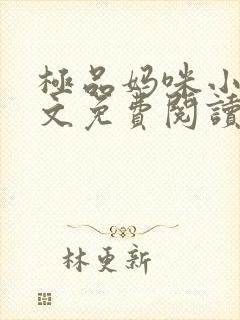 極品妈咪小
文免費閱讀
林更新